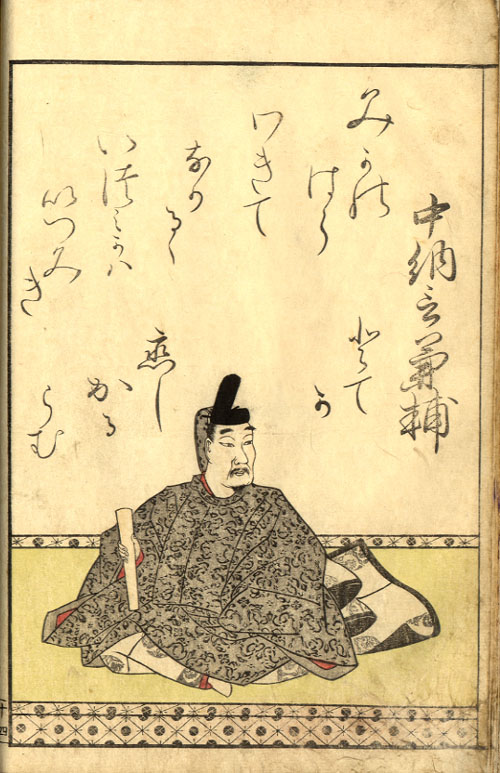 中納言兼輔
みかの
はら
わきて
なかるゝ
いつみかハ
いつみき
とて
か
恋し
かる
らむ